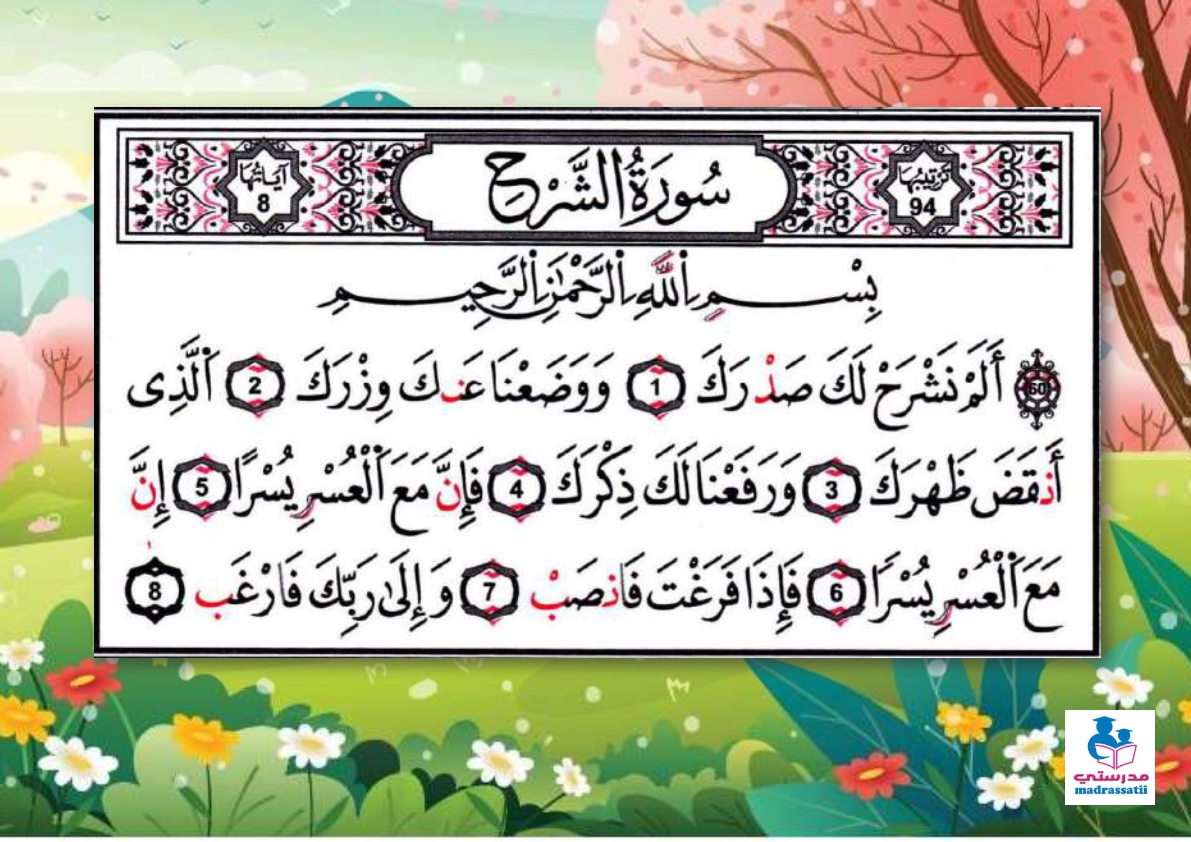 ترتيبها 94 سُورَةُ الشَّرْحِ آيَاتُهَا 8
بِسْمِ اِللَّهِ اِلرَّحْمَٰنِ اِلرَّحِيمِ
60 أَلَمْ نَشْرَحْ لَكَ صَدْرَكَ 1 وَوَضَعْنَا عَنكَ وِزْرَكَ 2 اَلَّذِى
أَنقَضَ ظَهْرَكَ 3 وَرَفَعْنَا لَكَ ذِكْرَكَ 4 فَإِنَّ مَعَ اَلْعُسْرِ يُسْرًا 5 إِنَّ
مَعَ اَلْعُسْرِ يُسْرًا 6 فَإِذَا فَرَغْتَ فَانصَبْ 7 وَإِلَىٰ رَبِّكَ فَارْغَب 8
مدرستي
madrassatii